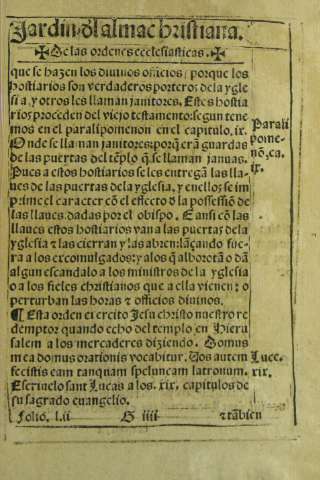 Jardin dl alma christiana.
✠ De las ordenes ecclesiasticas. ✠
que se hazen los diuinos officios, porque los
hostiarios son verdaderos porteros de la ygle
sia, y otros les llaman janitores. Estes hostia
rios proceden del viejo testamento: segun tene
mos en el paralipomenon en el capitulo. ix.
Onde se llaman janitores: porq̃ erã guardas
de las puertas del tẽplo q̃ se llaman januas.
Pues a estos hostiarios se les entregã las lla-
ues de las puertas de la yglesia, y en ellos se im
prime el caracter cõ el effecto d̃ la possessiõ de
las llaues, dadas por el obispo. E ansi cõ las
llaues estos hostiarios van a las puertas de la
yglesia & las cierran y las abren: lãçando fue-
ra a los excomulgados: y a los q̃ alborotã o dã
algun escandalo a los ministros de la yglesia
o a los fieles christianos que a ella vienen: o
perturban las horas & officios diuinos.
¶ Esta orden exercito Jesu christo nuestro re
demptor quando echo del templo en Hieru
salem a los mercaderes diziendo. Domus
mea domus orationis vocabitur. Vos autem
fecistis eam tanquam speluncam latronum.
Escriuelo sant Lucas a los. xix. capitulos de
su sagrado euangelio.
Parali
pome-
nõ. ca.
ix.
Luce.
xix.
Folio. l.ii G iiii & tãbien